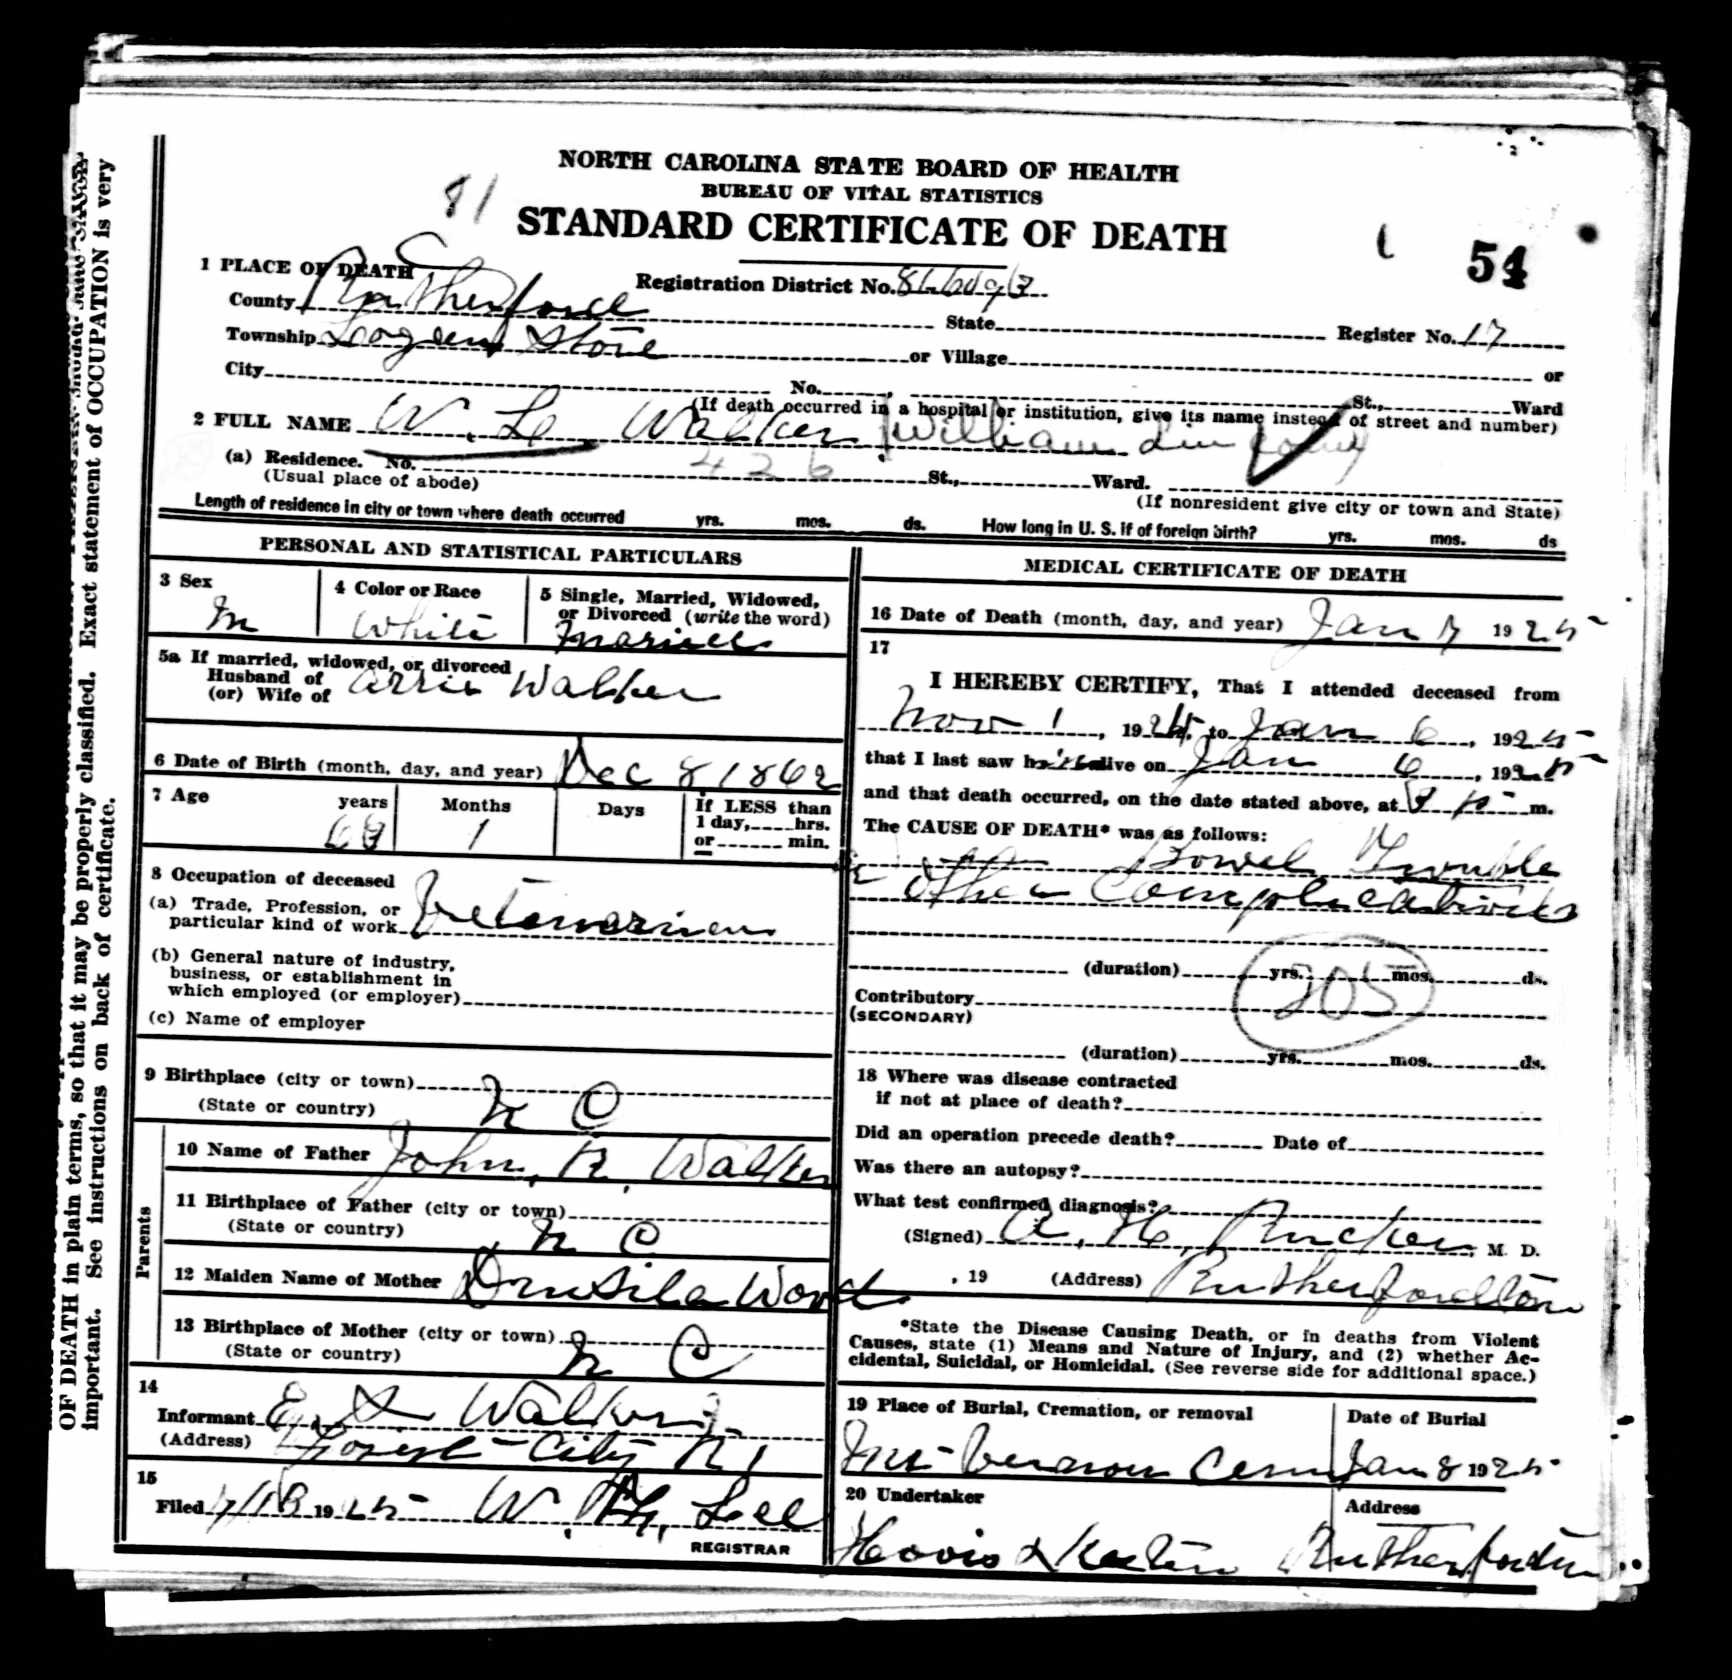 81
NORTH CAROLINA STATE BOARD OF HEALTH
BUREAU OF VITAL STATISTICS
STANDARD CERTIFICATE OF DEATH
54
1 PLACE OF DEATH
Registration District No.
County Rutherford State Register No. 17
Township Logan Store or Village or
City No. , St., Ward
(If death occurred in a hospital or institution, give its name instead of street and number)
2 FULL NAME W. L. Walker (William
(a) Residence. No. 426 St., Ward.
(Usual place of abode) (If nonresident give city or town and State)
Length of residence in city or town where death occurred yrs. mos. ds. How long in U. S. if of foreign birth? yrs. mos. ds
PERSONAL AND STATISTICAL PARTICULARS
3 Sex
M
4 Color or Race
White
5 Single, Married, Widowed,
or Divorced (write the word)
Married
5a If married, widowed, or divorced
Husband of
(or) Wife of
Arrie Walker
6 Date of Birth (month, day, and year) Dec 8 1862
7 Age years Months 1 Days
If LESS than
1 day, hrs.
or min.
8 Occupation of deceased
(a) Trade, Profession, or
particular kind of work Veterinarian
(b) General nature of industry,
business, or establishment in
which employed (or employer)
(c) Name of employer
9 Birthplace (city or town)
(State or country) N C
Parents
10 Name of Father John R. Walker
11 Birthplace of Father (city or town)
(State or country) N C
12 Maiden Name of Mother Drusila Word
13 Birthplace of Mother (city or town)
(State or country) N C
14
Informant Walker
(Address) Forest City R 1
15
Filed 1925 W. Lee
REGISTRAR
MEDICAL CERTIFICATE OF DEATH
16 Date of Death (month, day, and year) Jan 7 1925
17
I HEREBY CERTIFY, That I attended deceased from
Nov 1, 1924, to Jan 6, 1925
that I last saw him alive on Jan 6, 1925
and that death occurred, on the date stated above, at m.
The CAUSE OF DEATH* was as follows:
Bowel Trouble
other Complications
(duration) yrs. mos. ds.
205
Contributory
(SECONDARY)
(duration) yrs. mos. ds.
18 Where was disease contracted
if not at place of death?
Did an operation precede death? Date of
Was there an autopsy?
What test confirmed diagnosis?
(Signed) A. H. Rucker, M. D.
, 19 (Address) Rutherfordton
*State the Disease Causing Death, or in deaths from Violent
Causes, state (1) Means and Nature of Injury, and (2) whether Ac-
cidental, Suicidal, or Homicidal. (See reverse side for additional space.)
19 Place of Burial, Cremation, or removal
Mt Vernon Cem
Date of Burial
Jan 8 1925
20 Undertaker
Address
Rutherfordton
OF DEATH in plain terms, so that it may be properly classified. Exact statement of OCCUPATION is very
important. See instructions on back of certificate.